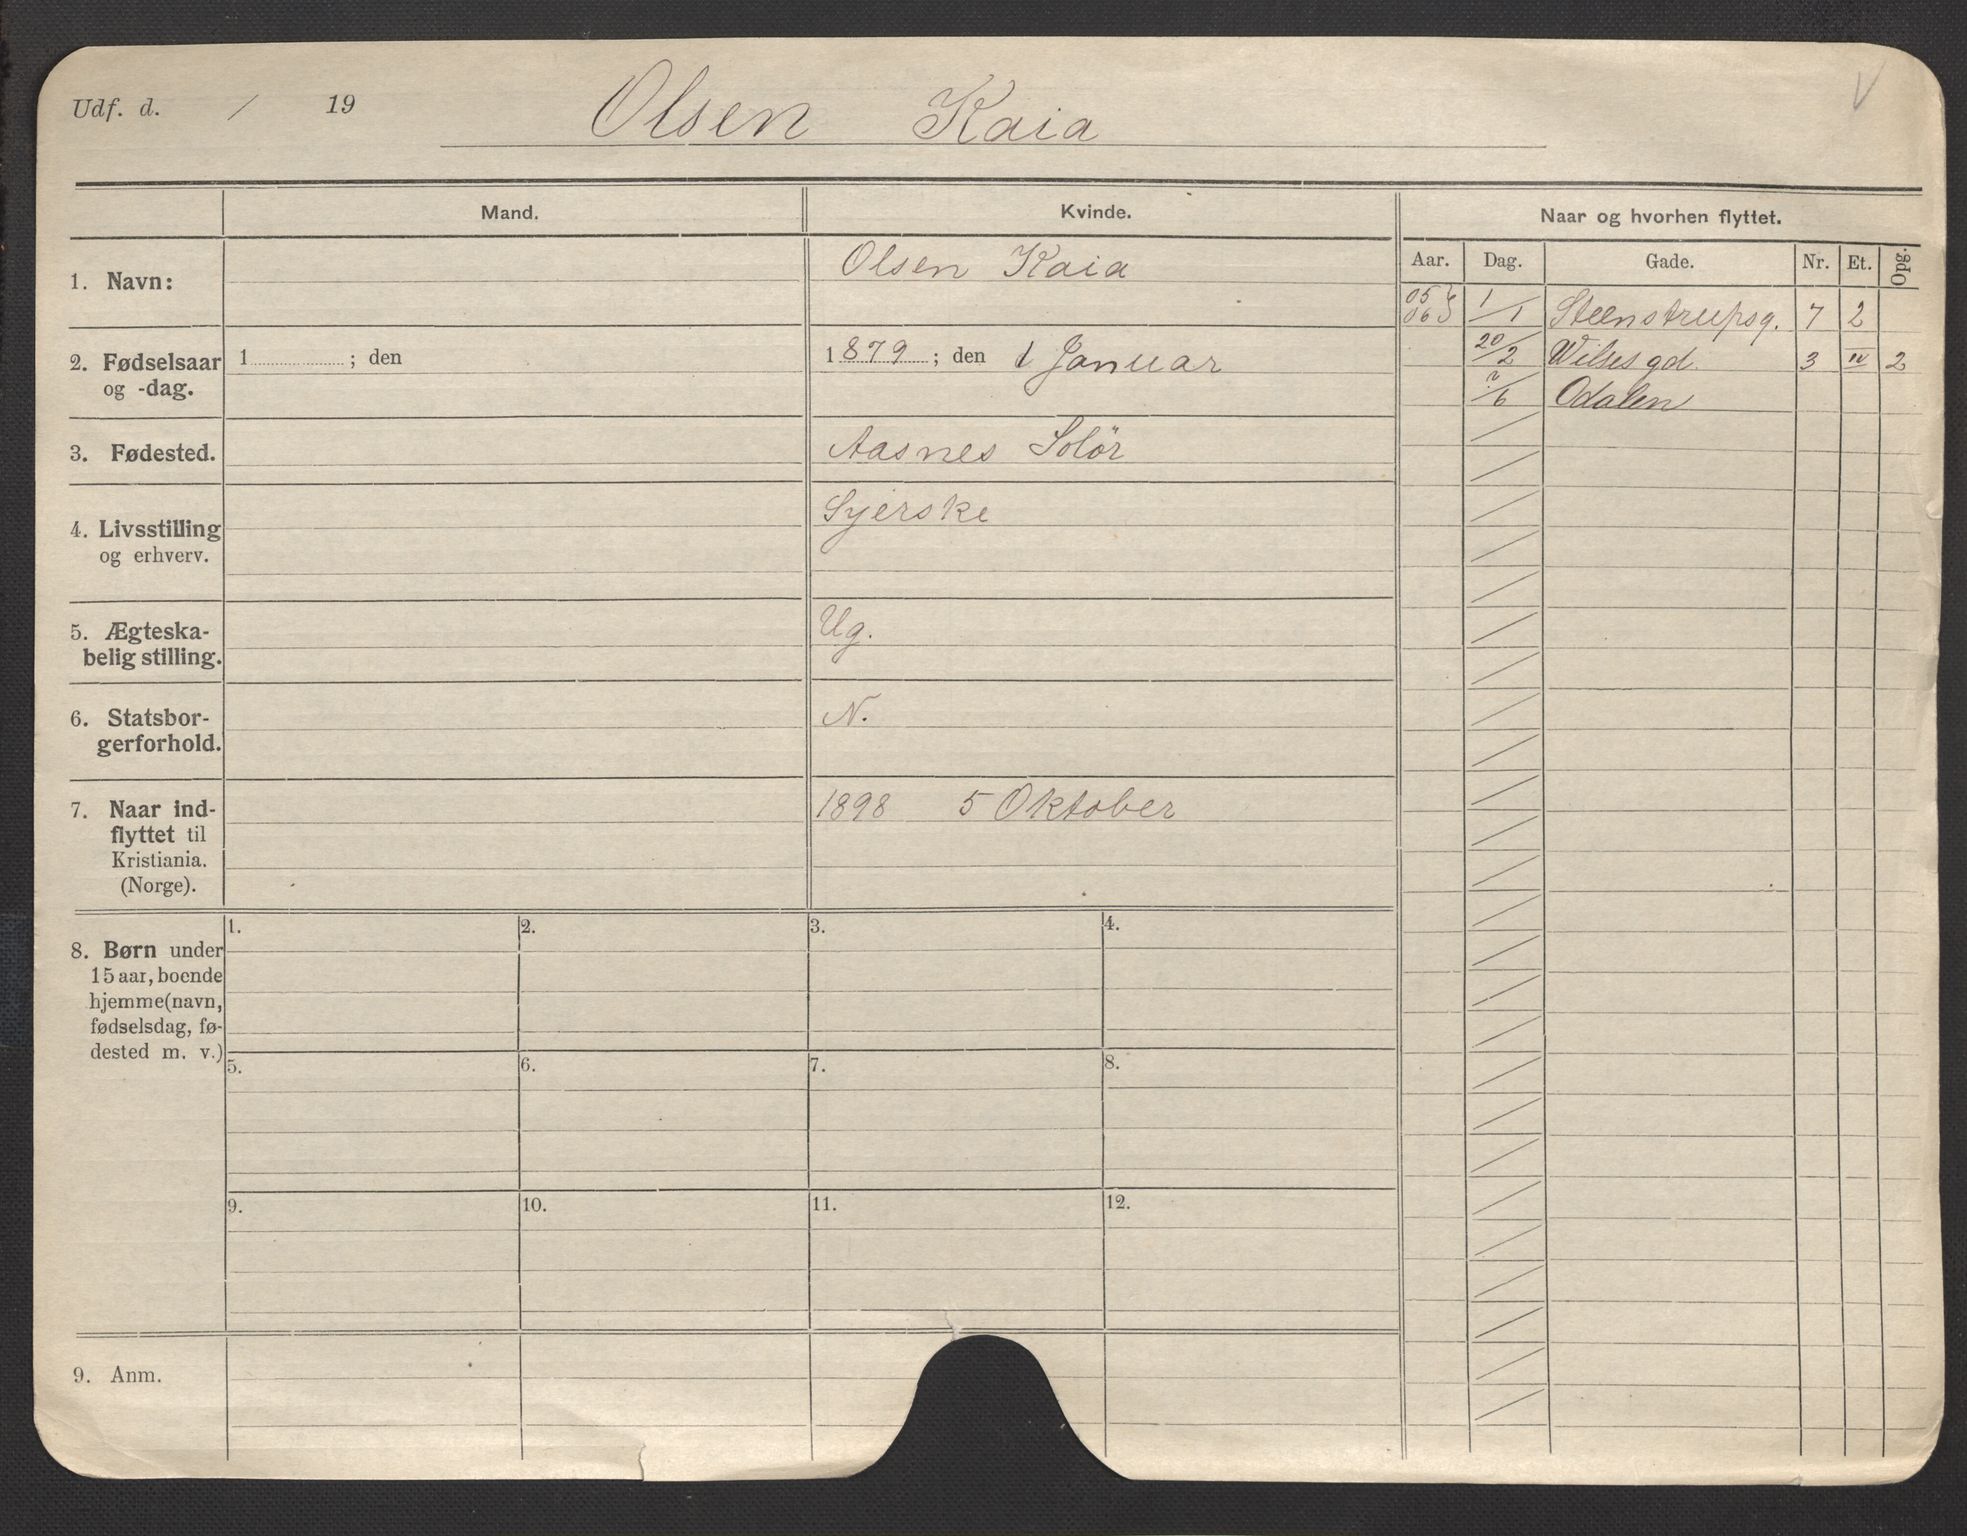 Udf. d. / 19 Olsen Kaia V
Mand. Kvinde. Naar og hvorhen flyttet.
Aar. Dag. Gade. Nr. Et. Opg.
1. Navn: Olsen Kaia
2. Fødselsaar
og -dag.
1 ; den
1879 ; den 1 Januar
3. Fødested. Aasnes Solör
4. Livsstilling
og erhverv.
Syerske
5. Ægteska-
belig stilling.
Ug.
6. Statsbor-
gerforhold.
N.
7. Naar ind-
flyttet til
Kristiania.
(Norge).
1898 5 Oktober
05
06 1/1 Steenstrupsg. 7 2
20/2 Wilsesgd. 3 IV 2
?/6 Odalen
8. Børn under
15 aar, boende
hjemme (navn,
fødselsdag, fø-
dested m. v.)
1. 2. 3. 4.
5. 6. 7. 8.
9. 10. 11. 12.
9. Anm.